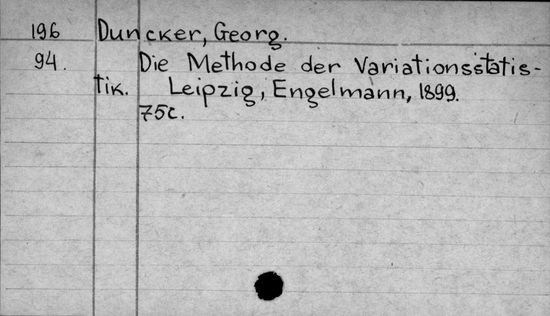 196 Duncker, Georg.
94. Die Methode der Variationsstatis-
tik. Leipzig, Engelmann, 1899.
75c.